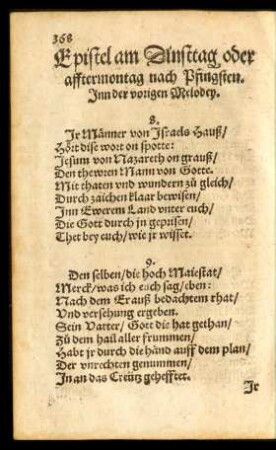 368
Epistel am Dinsttag oder
afftermontag nach Pfingsten.
Inn der vorigen Melodey.
8.
Ir Männer von Israels Hauß/
Hört dise wort on spotte:
Jesum von Nazareth on grauß/
Den thewren Mann von Gotte.
Mit thaten vnd wundern zů gleich/
Durch zaichen klaar bewisen/
Inn Ewerem Land vnter euch/
Die Gott durch jn geprisen/
Thet bey euch/wie jr wisset.
9.
Den selben/die hoch Maiestat/
Merck/was ich euch sag/eben:
Nach dem Er auß bedachtem rhat/
Vnd versehung ergeben.
Sein Vatter/ Gott die hat gethan/
Zů dem hail aller frummen/
Habt jr durch die händ auff dem plan/
Der vnrechten genummen/
In an das Creütz gehefftet.
Ir